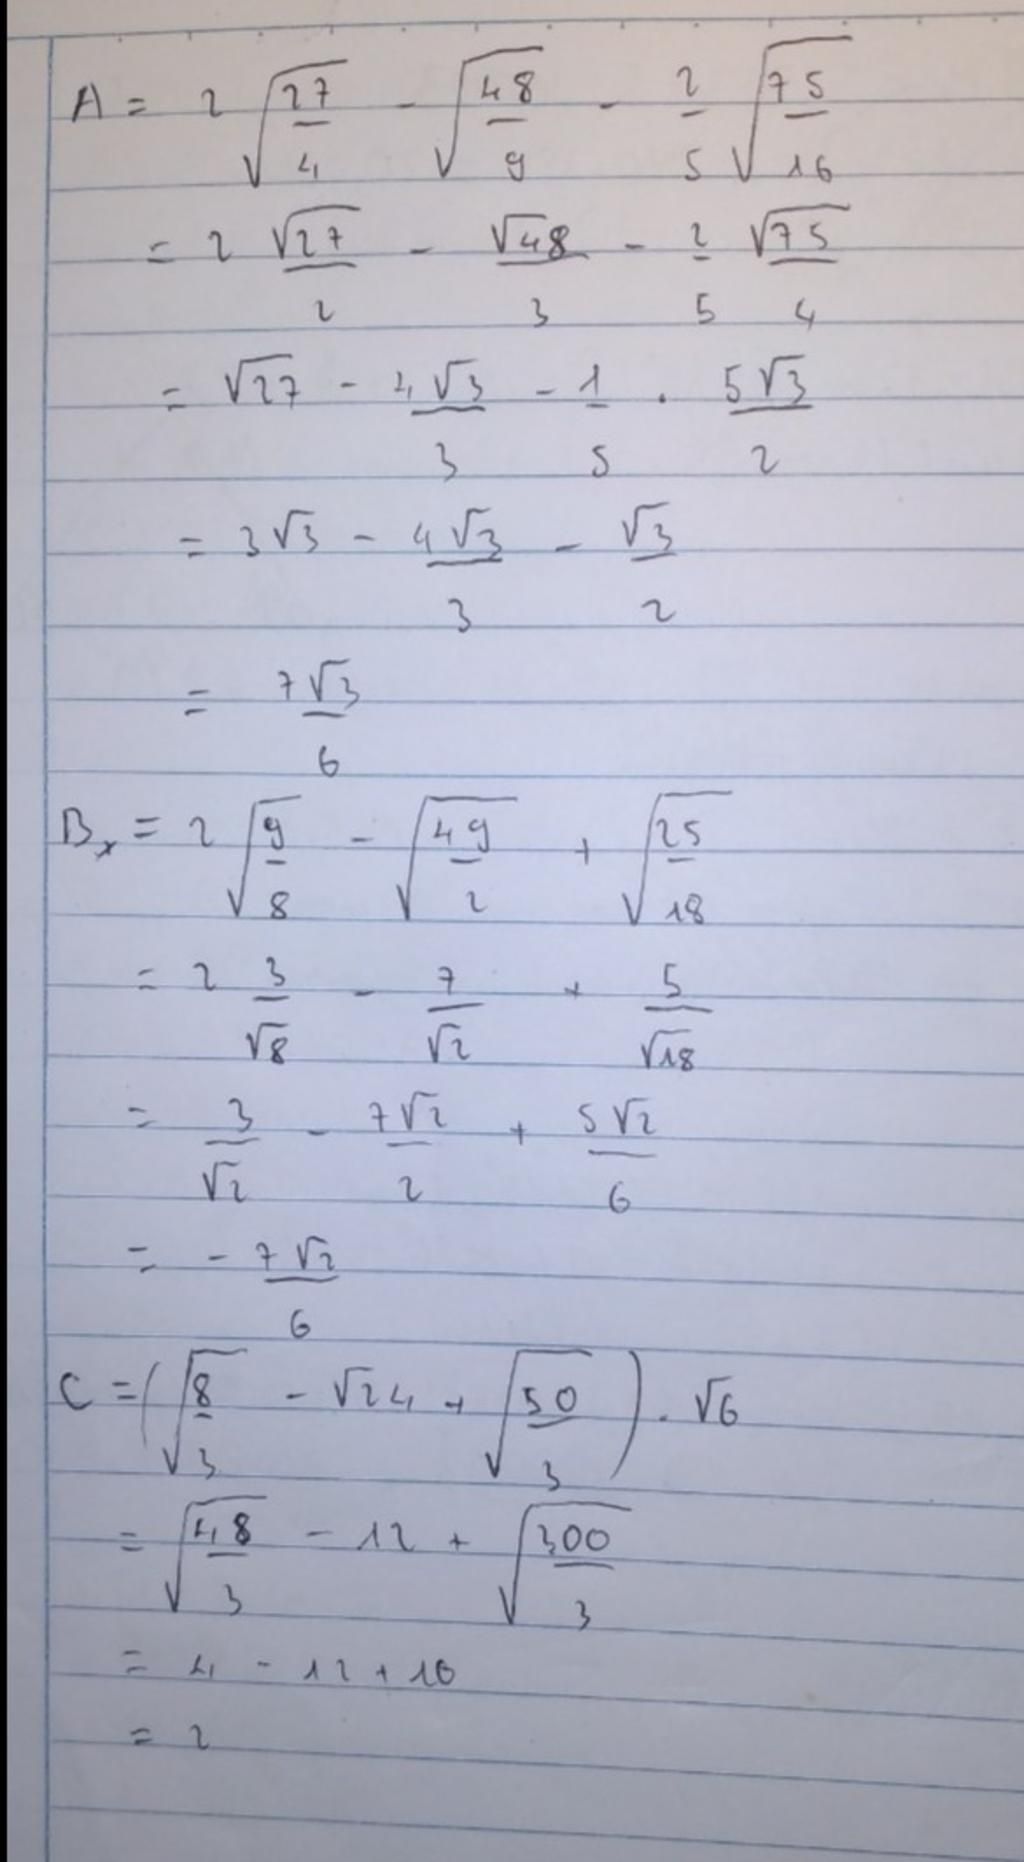 A = 2 √(27/4) - √(48/9) - 2/5 √(75/16)
= 2 √27/2 - √48/3 - 2/5 √75/4
= √27 - 4√3/3 - 1/5 . 5√3/2
= 3√3 - 4√3/3 - √3/2
= 7√3/6
B = 2 √(9/8) - √(49/2) + √(25/18)
= 2 3/√8 - 7/√2 + 5/√18
= 3/√2 - 7√2/2 + 5√2/6
= - 7√2/6
C = (√(8/3) - √24 + √(50/3)) . √6
= √(48/3) - 12 + √(300/3)
= 4 - 12 + 10
= 2